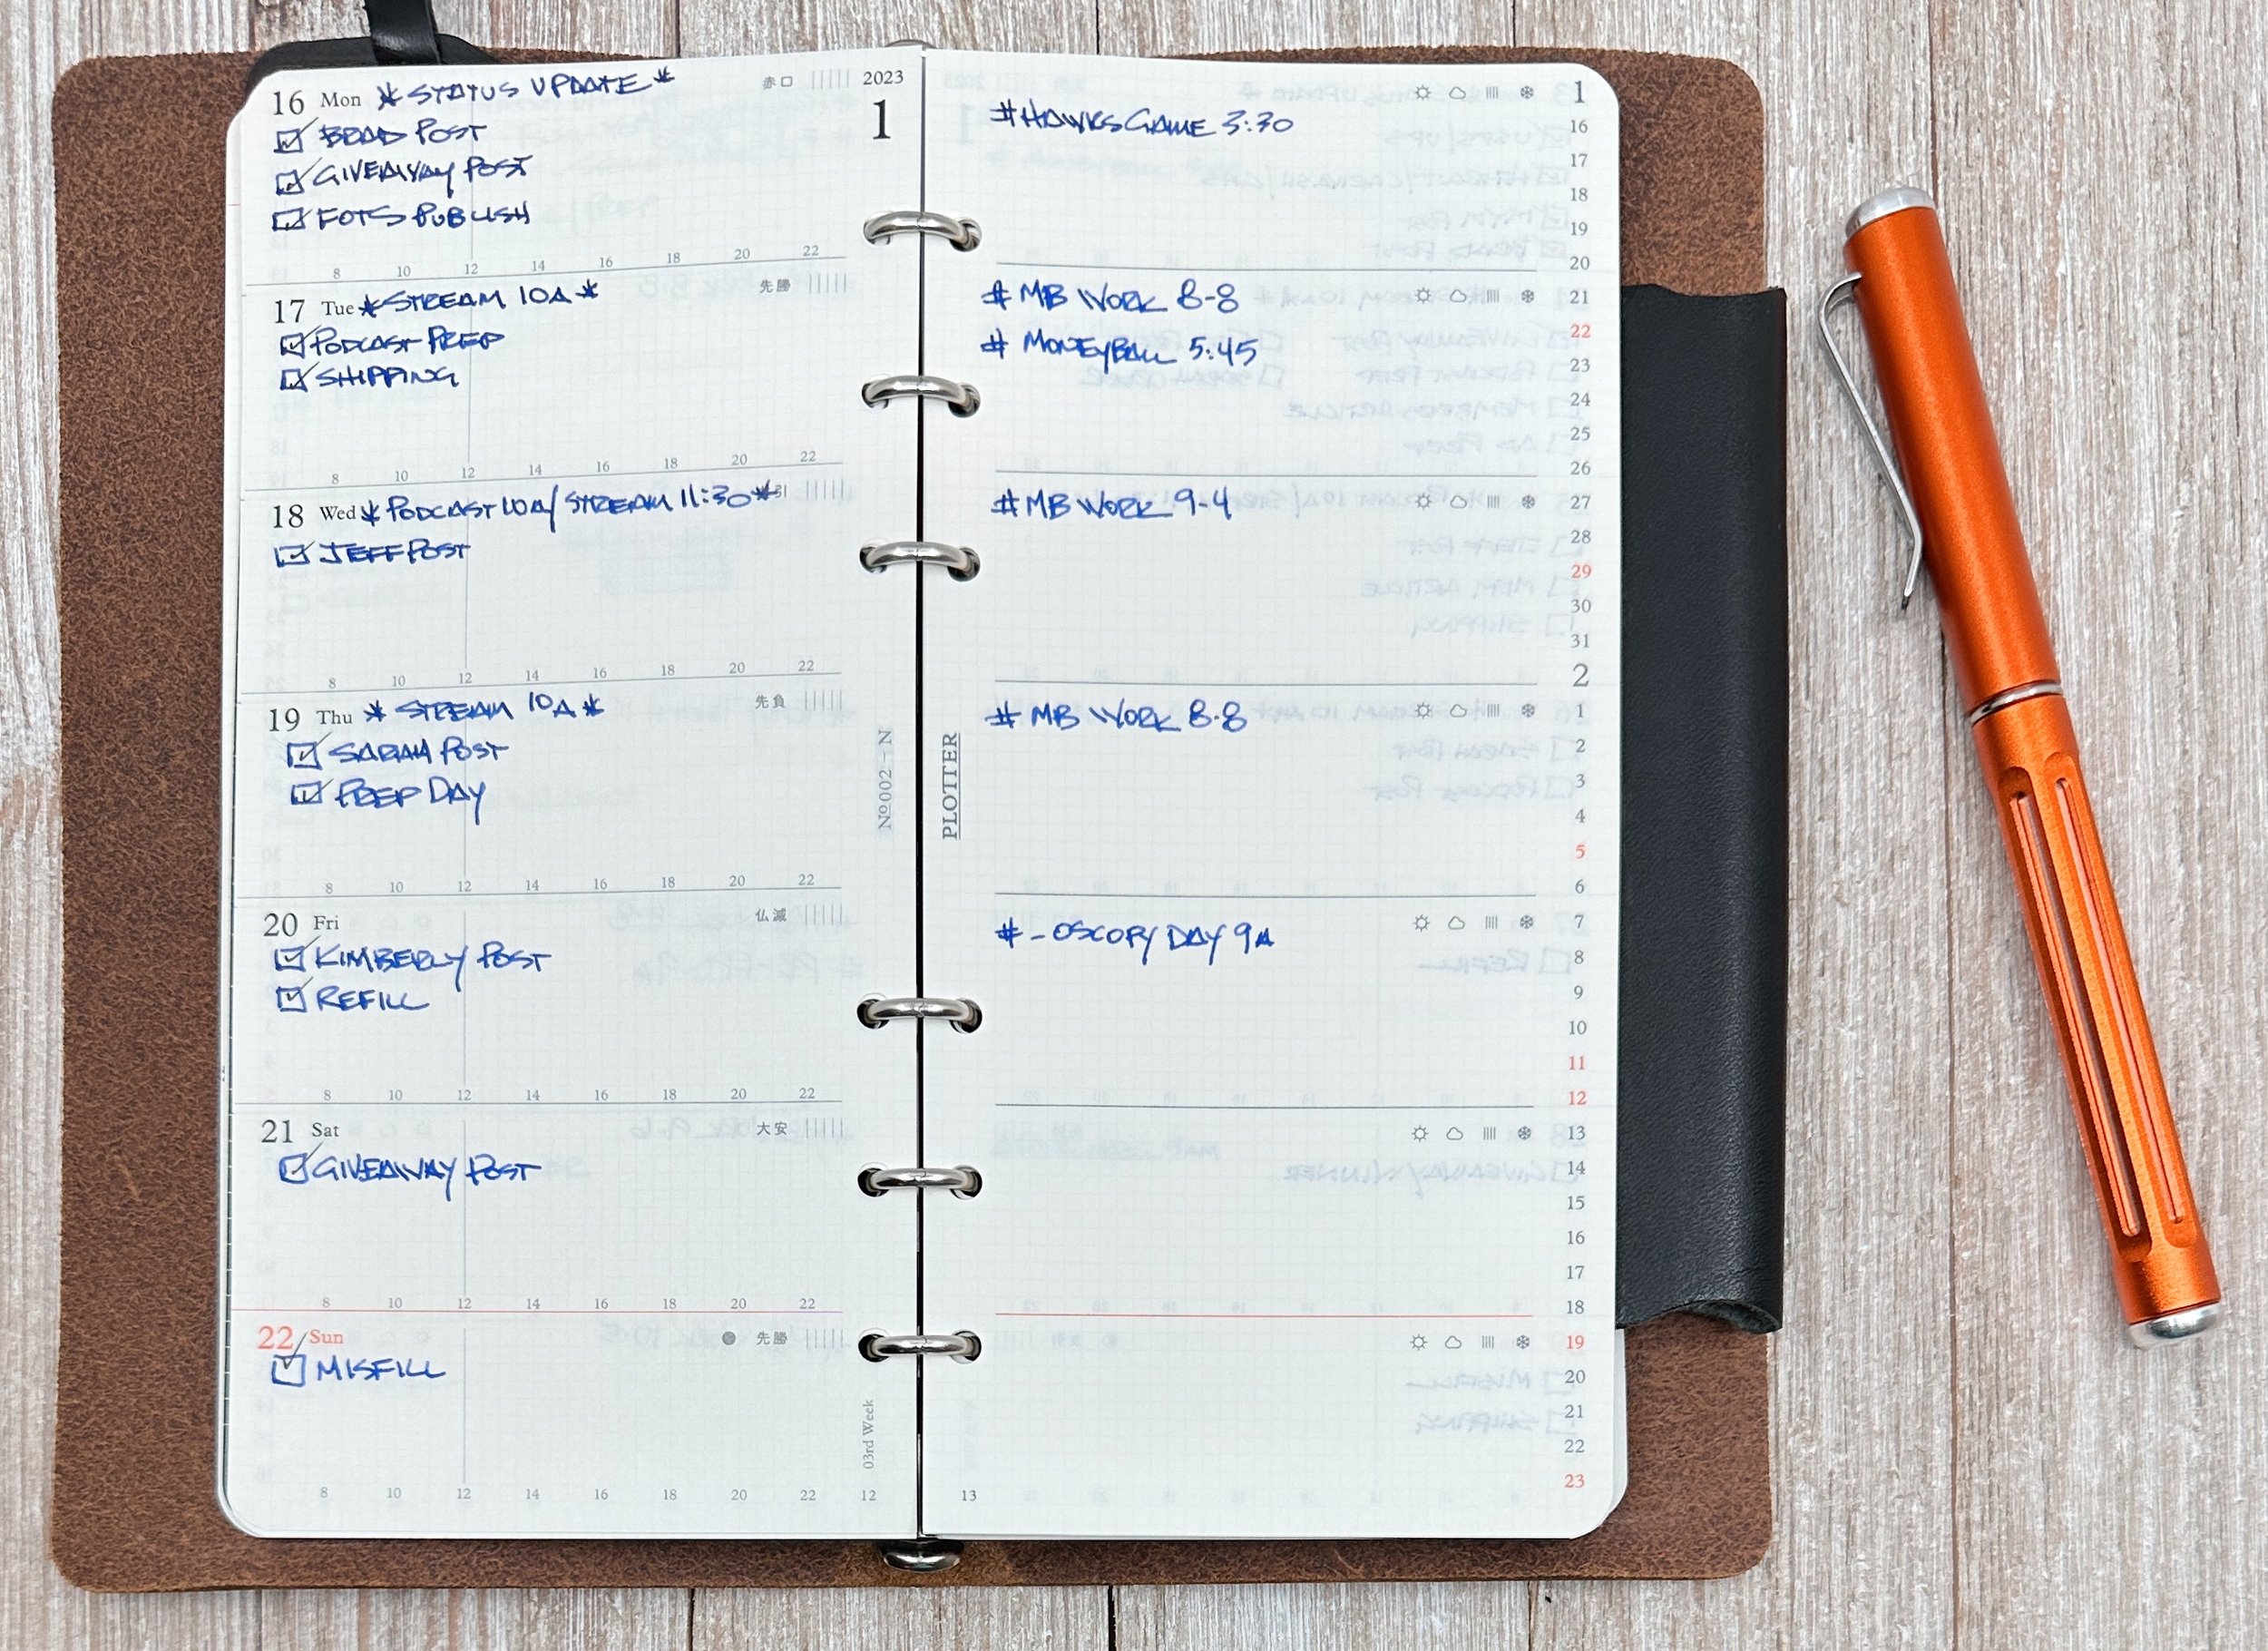 16 Mon * STATUS UPDATE * 赤口 2023
1
BRAD POST
GIVEAWAY POST
FOTS PUBLISH
8 10 12 14 16 18 20 22
17 Tue * STREAM 10A * 先勝
PODCAST PREP
SHIPPING
8 10 12 14 16 18 20 22
18 Wed * PODCAST 10A/ STREAM 11:30 * 引
JEFF POST
8 10 12 14 16 18 20 22
19 Thu * STREAM 10A * 先負
SARAH POST
PREP DAY
8 10 12 14 16 18 20 22
20 Fri 仏滅
KIMBERLY POST
REFILL
8 10 12 14 16 18 20 22
21 Sat 大安
GIVEAWAY POST
8 10 12 14 16 18 20 22
22 Sun 先勝
MISFILL
8 10 12 14 16 18 20 22 12
Nº002-N
03rd Week
PLOTTER
# HAWKS GAME 3:30
# MB WORK 8-8
# MONEYBALL 5:45
# MB WORK 9-4
# MB WORK 8-8
# -OSCOPY DAY 9A
13
1
16
17
18
19
20
21
22
23
24
25
26
27
28
29
30
31
2
1
2
3
4
5
6
7
8
9
10
11
12
13
14
15
16
17
18
19
20
21
22
23